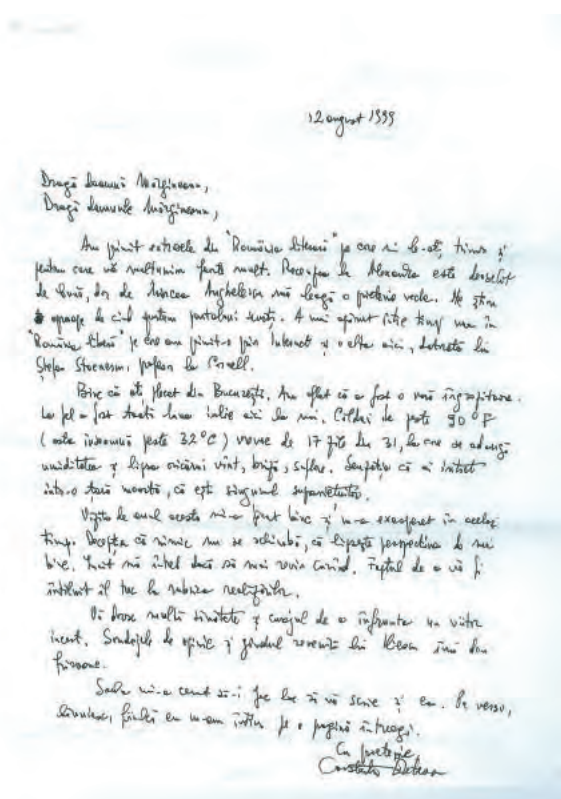 12 august 1999
Dragă Doamnă Mărgineanu,
Dragă Domnule Mărgineanu,
Am primit extrasele din "România literară" pe care ni le-ați trimis și
pentru care vă mulțumim foarte mult. Recenzia la Alexandra este deosebit
de bună, dar de Mircea Anghelescu mă leagă o prietenie veche. Ne știm
de când suntem a mai apărut între timp una în
"România liberă" pe care am primit-o prin Internet și o alta aici, datorată lui
Ștefan Stoenescu, profesor la Cornell.
Bine că ați plecat din București. Am aflat că a fost o vară îngrozitoare.
La fel a fost toată luna iulie aici la noi. Călduri de peste 90°F
(asta înseamnă peste 32°C) vreme de 17 zile din 31, la care se adaugă
umiditatea și lipsa oricărui vânt, briză, suflare. Senzația că ai intrat
într-o țară moartă, că ești singurul supraviețuitor.
Vizita de anul acesta mi-a făcut bine și m-a exasperat în același
timp. Decepția că nimic nu se schimbă, că lipsește perspectiva de mai
bine. Încât mă întreb dacă să mai revin curând. Faptul de a vă fi
întâlnit îl trec la rubrica realizărilor.
Vă doresc multă sănătate și curajul de a înfrunta un viitor
incert. Sondajele de opinie și gândul revenirii lui Iliescu îmi dau
frisoane.
Sanda mi-a cerut să-i fac loc să vă scrie și ea. Pe verso,
bineînțeles, fiindcă eu m-am întins pe o pagină întreagă.
Cu prietenie,